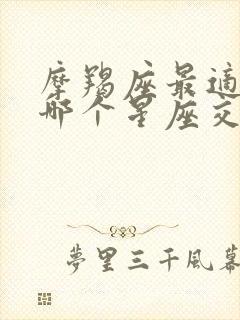 摩羯座最适
哪个星座交
夢里三千風幕